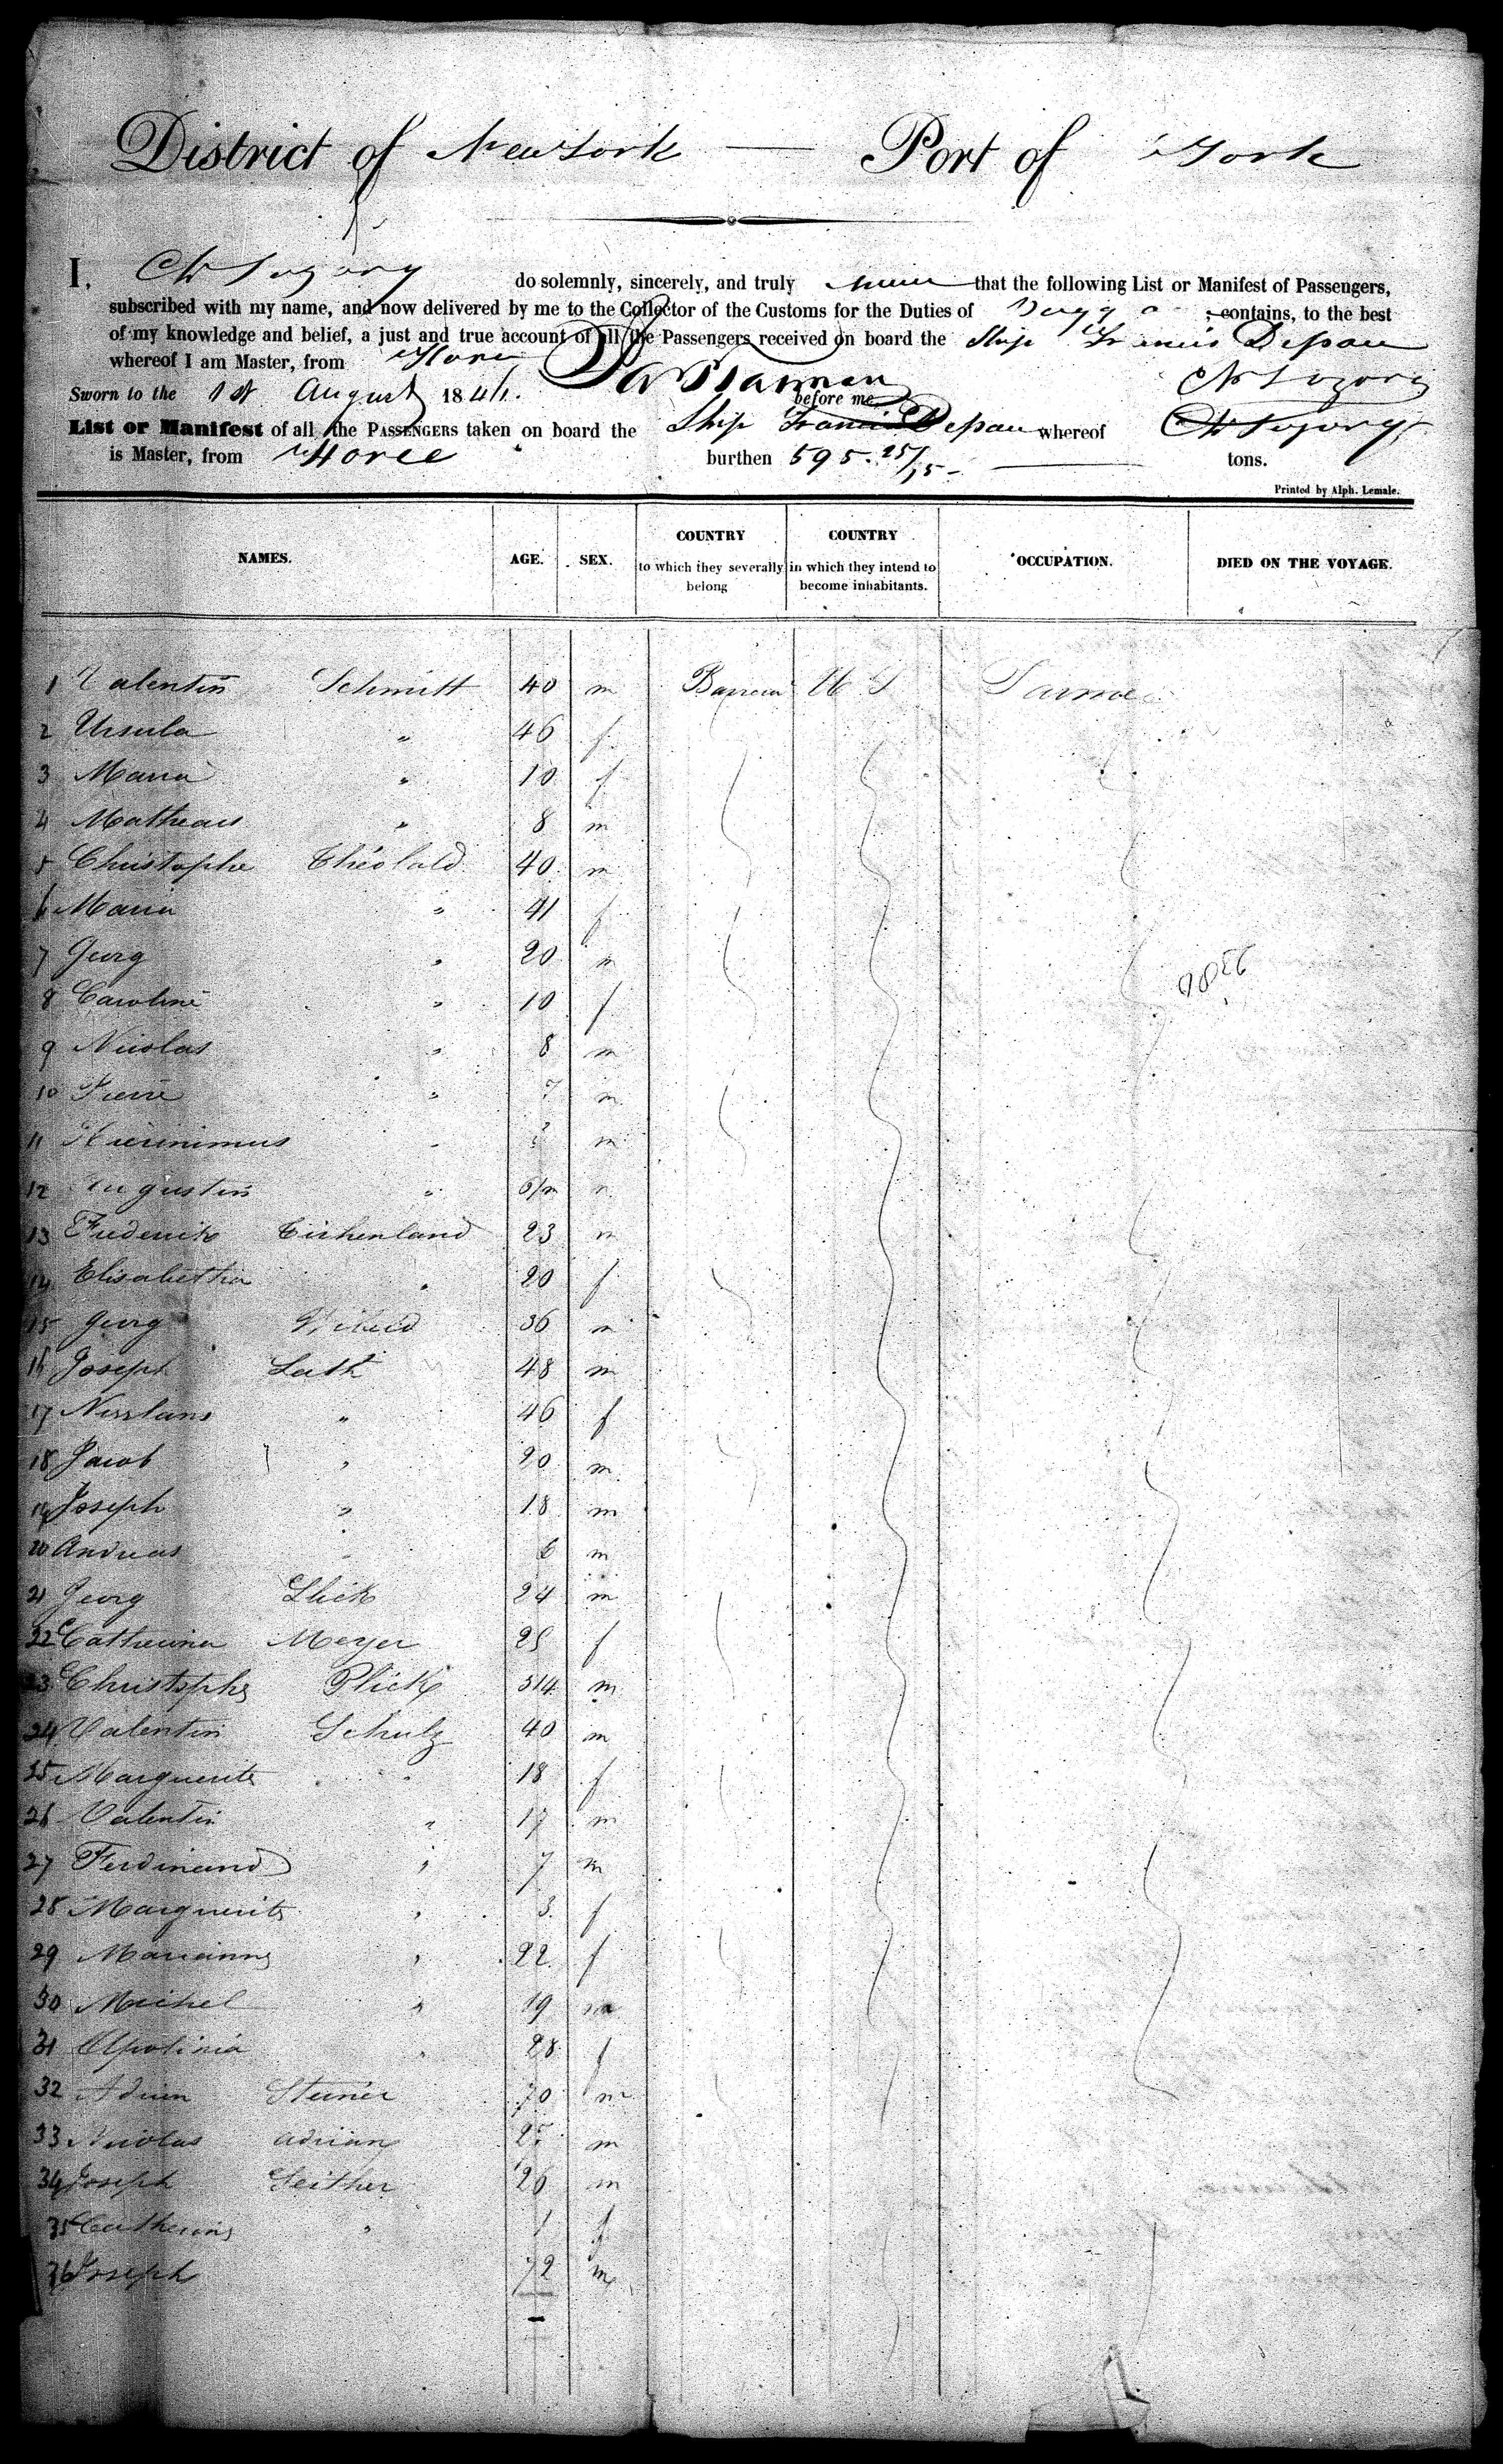 District of New York — Port of York
I, do solemnly, sincerely, and truly that the following List or Manifest of Passengers,
subscribed with my name, and now delivered by me to the Collector of the Customs for the Duties of ; contains, to the best
of my knowledge and belief, a just and true account of all the Passengers received on board the Ship Francis Depau
whereof I am Master, from
Sworn to the 1st August 184 before me
List or Manifest of all the PASSENGERS taken on board the Ship Francis Depau whereof
is Master, from burthen 595. 25/ tons.
Printed by Alph. Lemale.
NAMES. AGE. SEX. COUNTRY to which they severally belong COUNTRY in which they intend to become inhabitants. OCCUPATION. DIED ON THE VOYAGE.
1 Valentin Schmitt 40 m U S
2 Ursula " 46 f
3 Maria " 10 f
4 Matheas " 8 m
5 Christophe Théobald 40 m
6 Maria " 41 f
7 Georg " 20 m
8 Caroline " 10 f
9 Nicolas " 8 m
10 Pierre " 7 m
11 Hieronimus " m
12 Augustin " 6/m m
13 Frederik 23 m
14 Elisabetha " 20 f
15 Georg 36 m
16 Joseph 48 m
17 " 46 f
18 Jacob " 20 m
19 Joseph " 18 m
20 Andreas 6 m
21 Georg 24 m
22 Catherina Meyer 25 f
23 Christophe Plick m
24 Valentin Schulz 40 m
25 Marguerite " 18 f
26 Valentin " 17 m
27 Ferdinand " 7 m
28 Marguerite " 3 f
29 Marianne " 22 f
30 Michel " 19 m
31 Apolinia " 28 f
32 Adrien Steiner 70 m
33 Nicolas Adrian m
34 Joseph Seither 26 m
35 Catherine " 1 f
36 Joseph 72 m